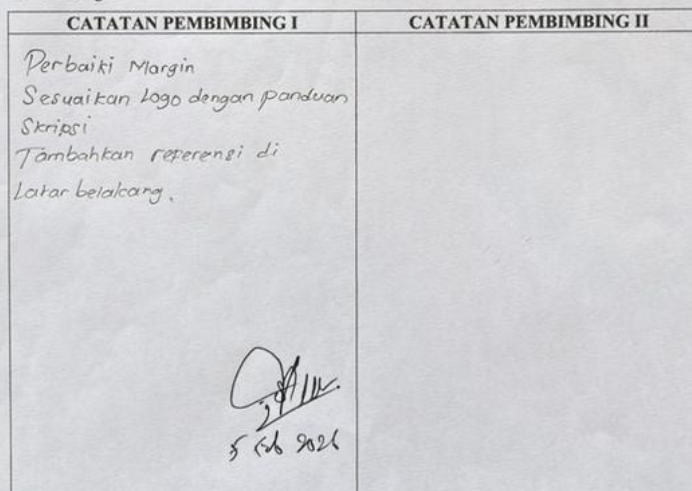 CATATAN PEMBIMBING I
CATATAN PEMBIMBING II
Perbaiki Margin
Sesuaikan Logo dengan panduan
Skripsi
Tambahkan referensi di
Latar belakang.
5 Feb 2026